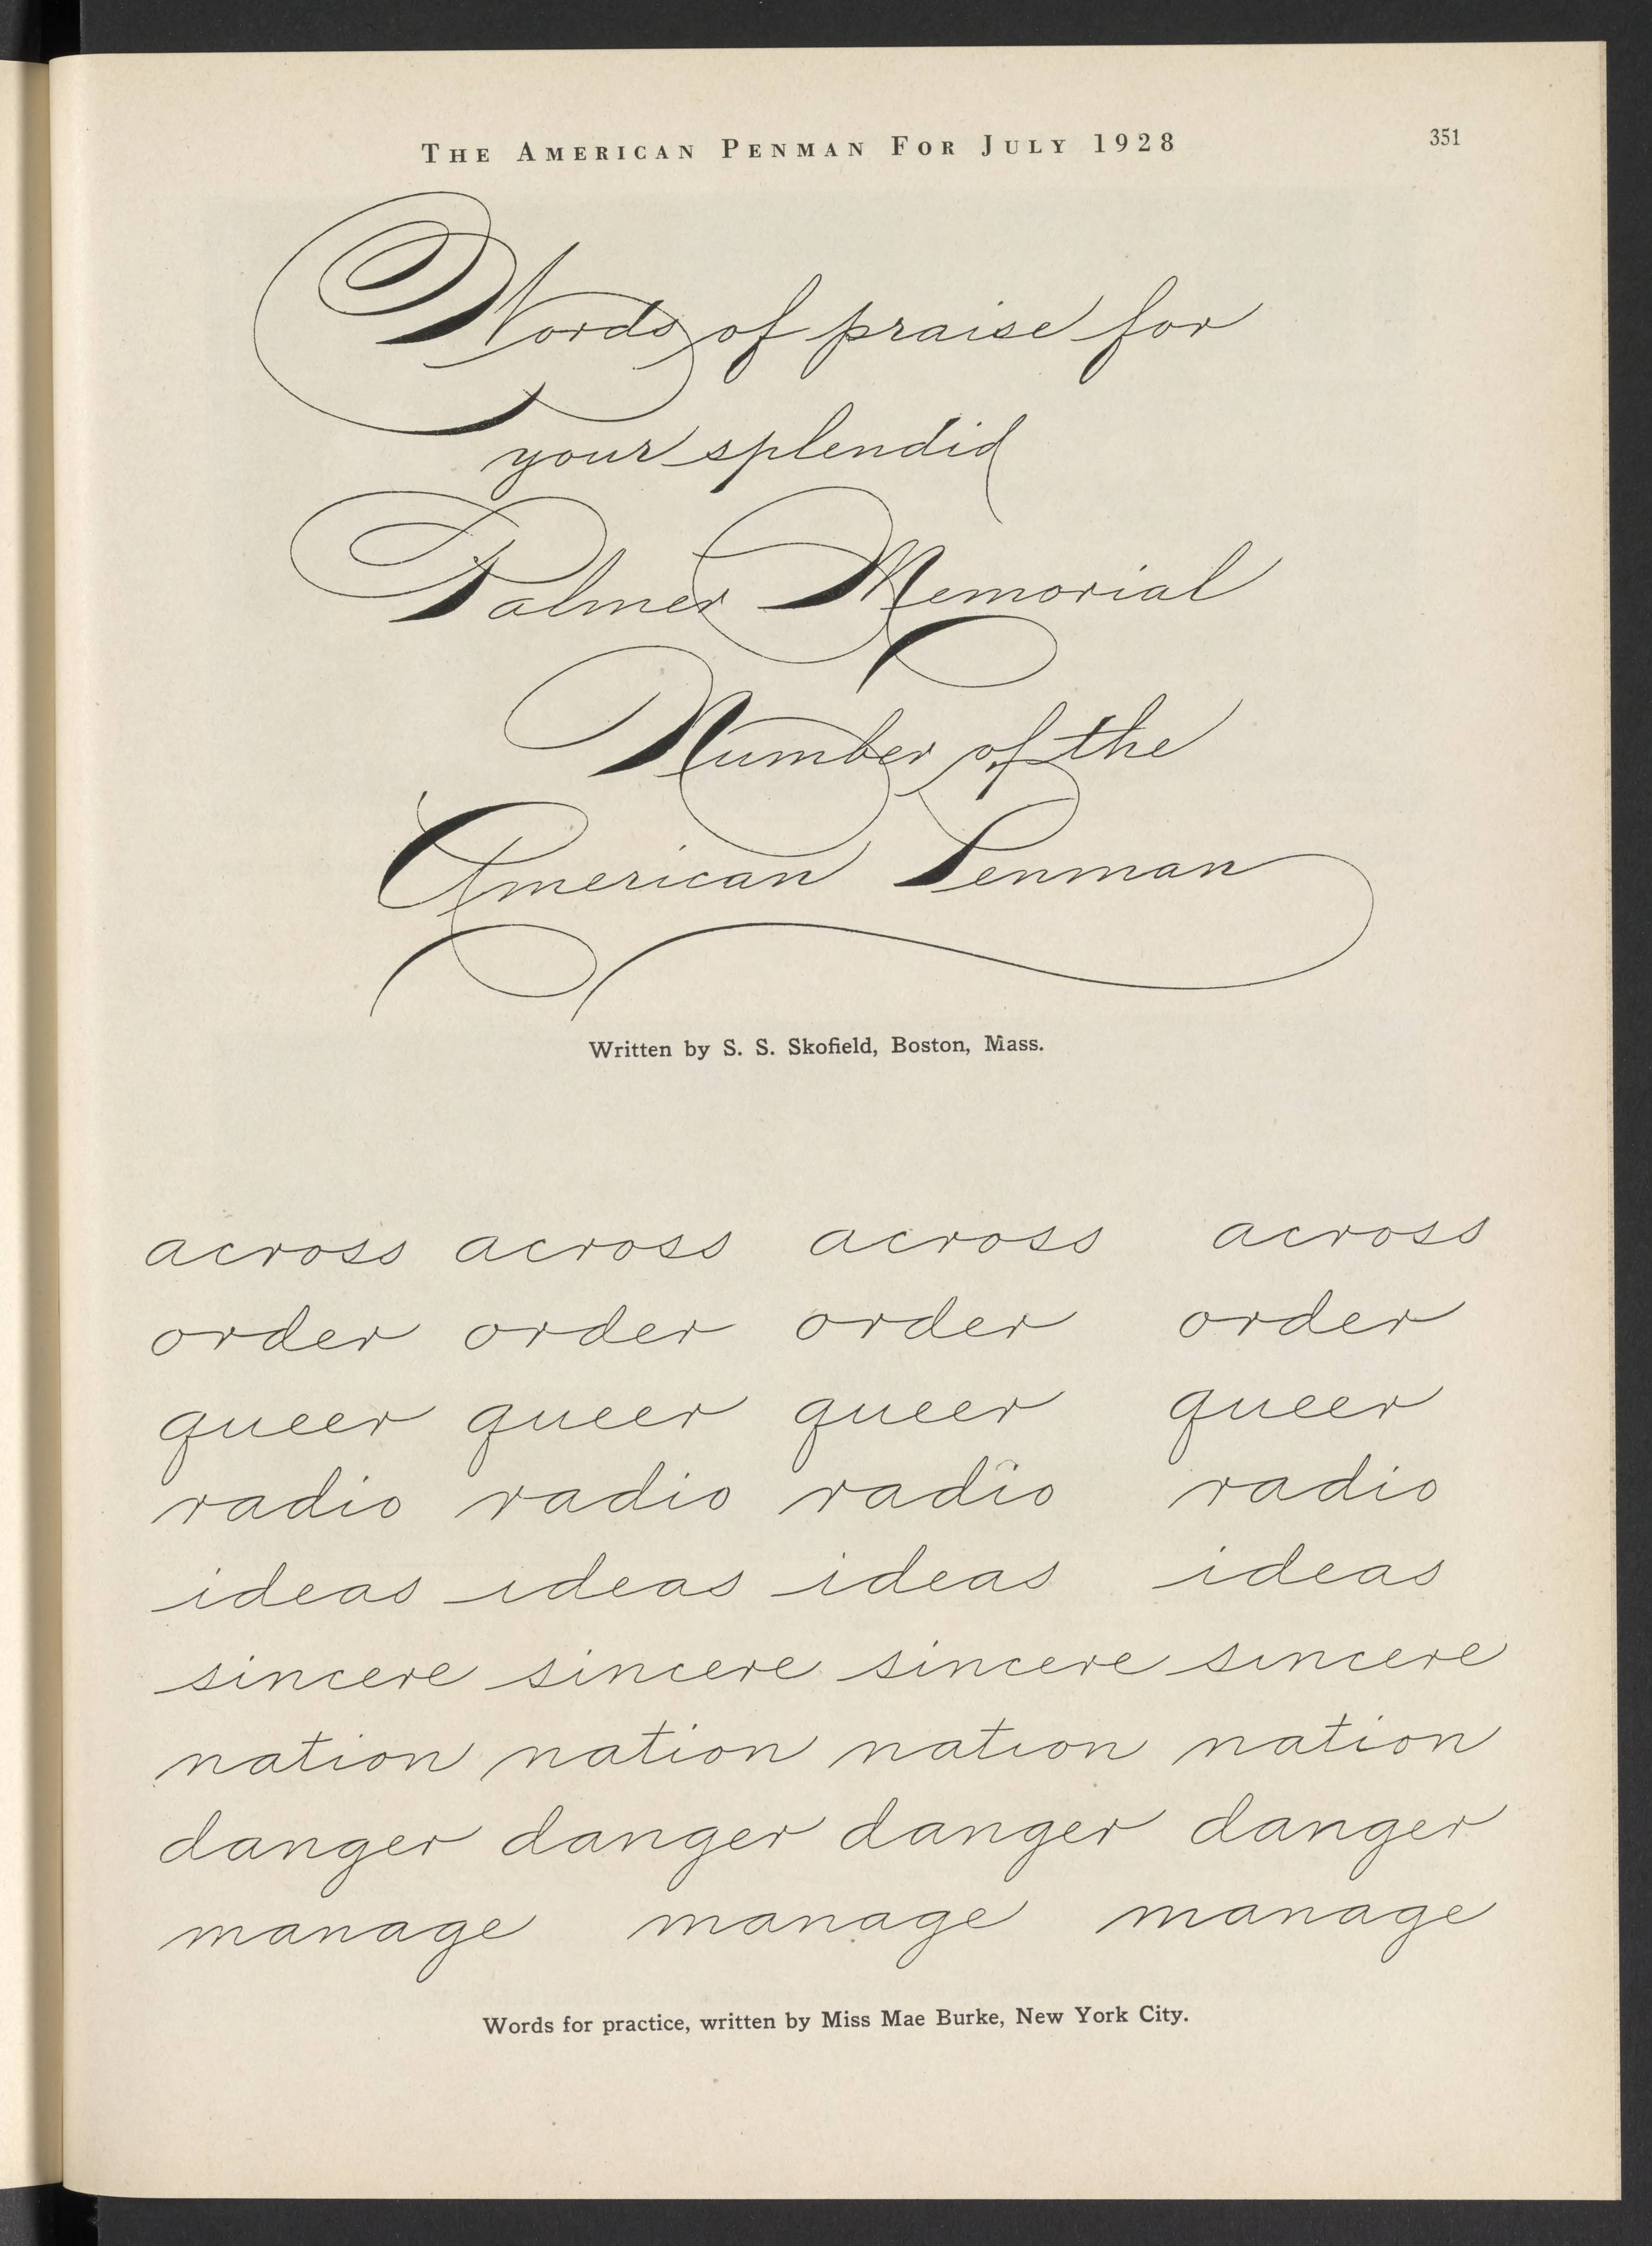 THE AMERICAN PENMAN FOR JULY 1928 351
Words of praise for
your splendid
Palmer Memorial
Number of the
American Penman
Written by S. S. Skofield, Boston, Mass.
across across across across
order order order order
queer queer queer queer
radio radio radio radio
ideas ideas ideas ideas
sincere sincere sincere sincere
nation nation nation nation
danger danger danger danger
manage manage manage
Words for practice, written by Miss Mae Burke, New York City.